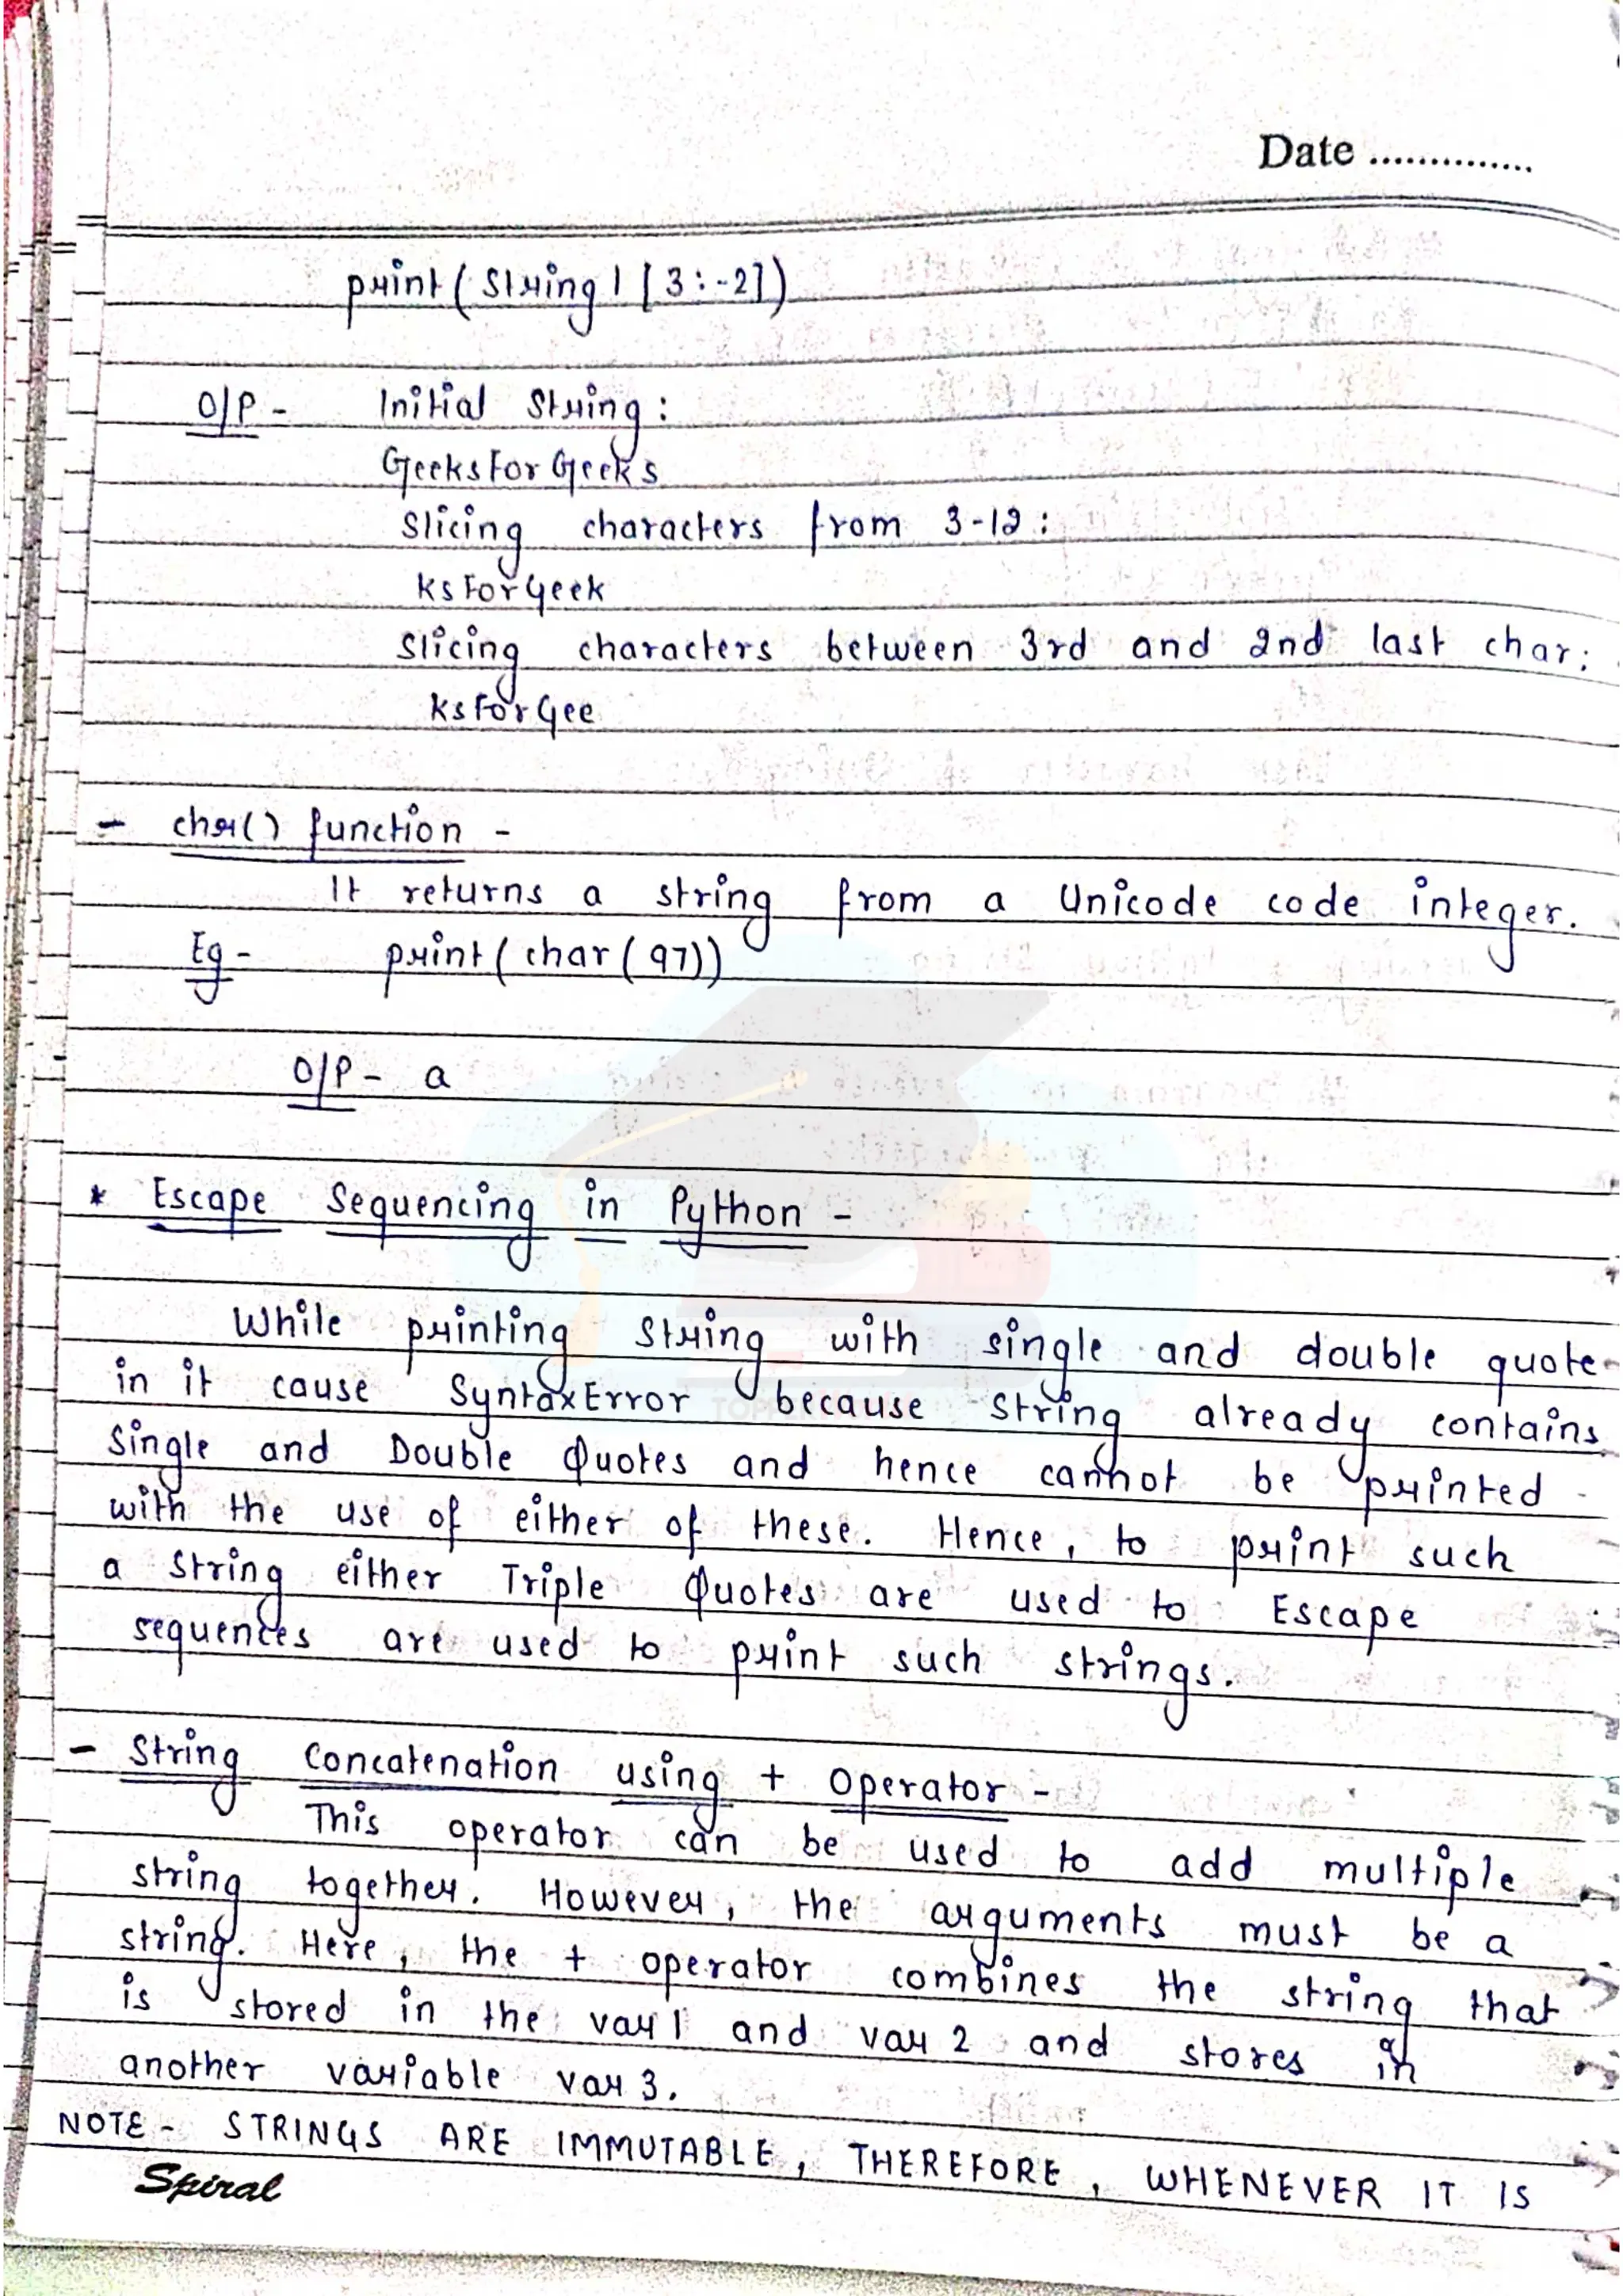 Date ..............
print(String1[3:-2])
O/P - Initial String:
GeeksForGeeks
Slicing characters from 3-12:
ksForGeek
Slicing characters between 3rd and 2nd last char:
ksForGee
- chr() function -
It returns a string from a Unicode code integer.
Eg - print(char(97))
O/P - a
* Escape Sequencing in Python -
While printing String with single and double quote
in it cause SyntaxError because String already contains
Single and Double Quotes and hence cannot be printed
with the use of either of these. Hence, to print such
a String either Triple Quotes are used to Escape
sequences are used to print such strings.
- String Concatenation using + Operator -
This operator can be used to add multiple
string together. However, the arguments must be a
string. Here, the + operator combines the string that
is stored in the var1 and var 2 and stores in
another variable var 3.
NOTE - STRINGS ARE IMMUTABLE, THEREFORE, WHENEVER IT IS
Spiral